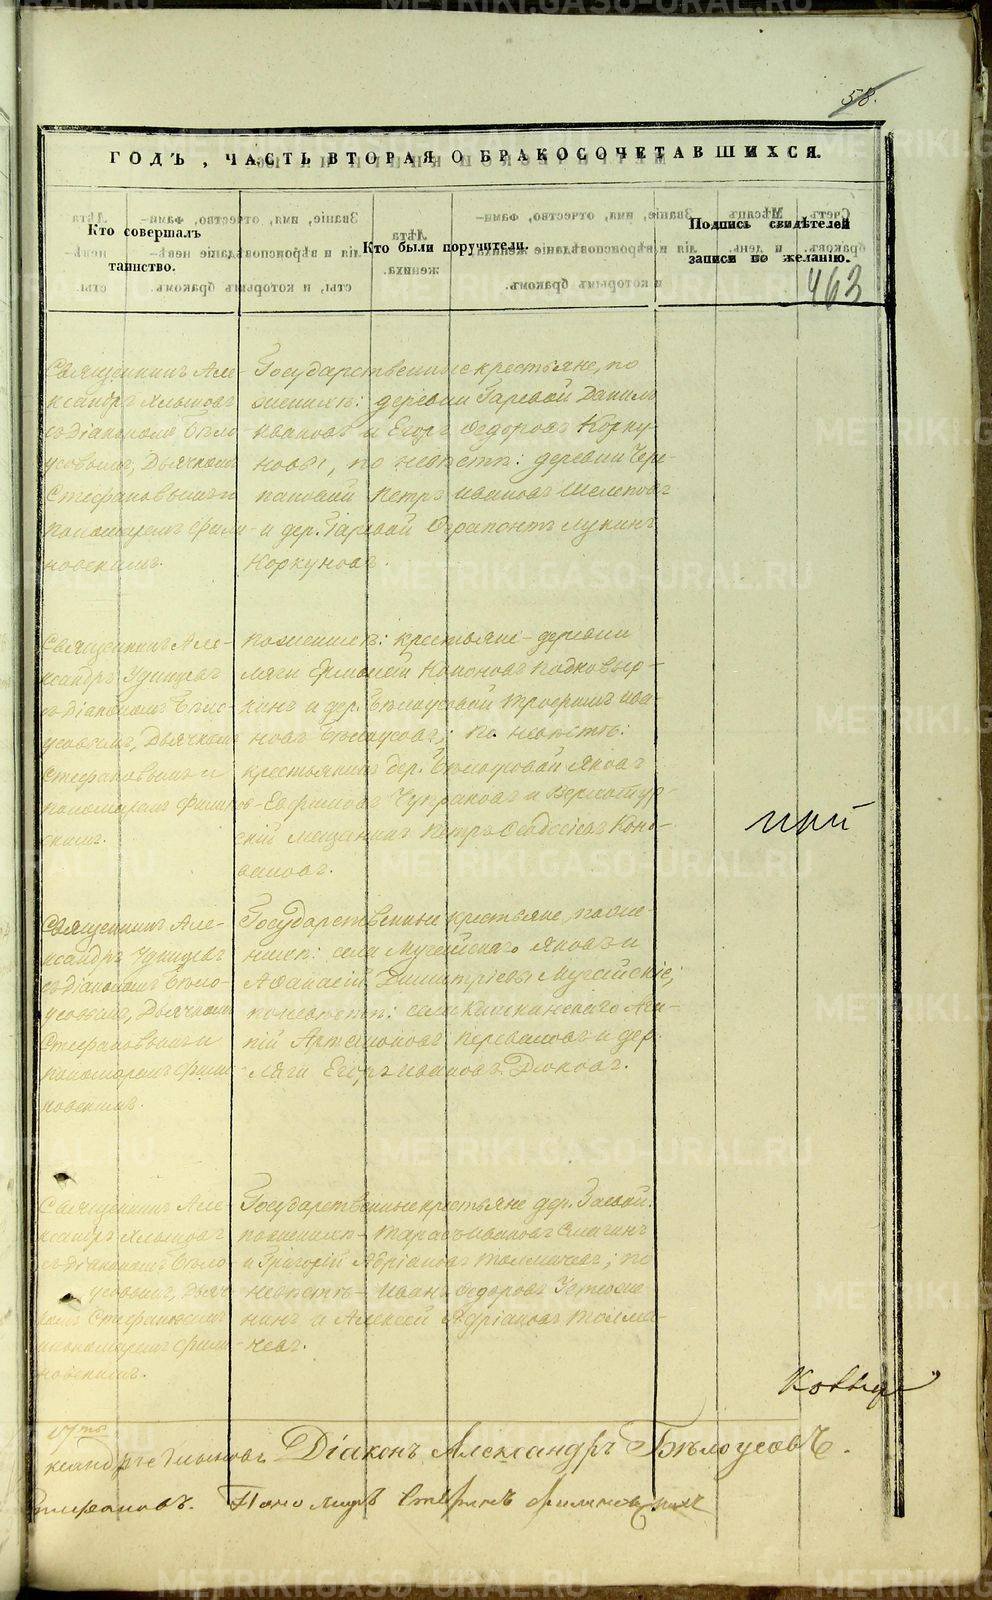 58.
ГОДЪ, ЧАСТЬ ВТОРАЯ О БРАКОСОЧЕТАВШИХСЯ.
Кто совершалъ
таинство.
Кто были поручители.
Подпись свидѣтелей
записи по желанію.
463
Священникъ Але-
ксандръ Хлыновъ
съ Діакономъ Бѣло-
усовымъ, Дьячкомъ
Стефановымъ и
пономаремъ Фили-
новскимъ.
Государственные крестьяне, по
женихѣ: деревни Гаревой Данилъ
Ивановъ и Егоръ Ѳедоровъ Корку-
новы, по невѣстѣ: деревни Чере-
пановой Петръ Ивановъ Шелеповъ
и дер. Гаревой Ферапонтъ Лукинъ
Коркуновъ.
Священникъ Але-
ксандръ Удинцевъ
съ Діакономъ Бѣло-
усовымъ, Дьячкомъ
Стефановымъ и
пономаремъ Филинов-
скимъ.
По женихѣ: крестьяне деревни
Ляги Ермолай Кононовъ Подковыр-
кинъ и дер. Бѣлоусовой Трофимъ Ива-
новъ Бѣлоусовъ; по невѣстѣ:
крестьянинъ дер. Бѣлоусовой Яковъ
Евфимовъ Чупраковъ и Верхотур-
скій мещанинъ Петръ Ѳеодосіевъ Коно-
валовъ.
Священникъ Але-
ксандръ Удинцевъ
съ Діакономъ Бѣло-
усовымъ, Дьячкомъ
Стефановымъ и
пономаремъ Фили-
новскимъ.
Государственные крестьяне, по же-
нихѣ: села Мугайскаго Яковъ и
Аѳанасій Димитріевы Мугайскіе;
по невѣстѣ: села Кишкинскаго Ага-
пій Артемоновъ Переваловъ и дер.
Ляги Егоръ Ивановъ Дюковъ.
Священникъ Але-
ксандръ Хлыновъ
съ Діакономъ Бѣло-
усовымъ, Дьяч-
комъ Стефановымъ
и пономаремъ Фили-
новскимъ.
Государственные крестьяне дер. Гаевой.
по женихѣ Тарасъ Ивановъ Смагинъ
и Григорій Адріановъ Толмачевъ; по
невѣстѣ Иванъ Ѳедоровъ Устюжа-
нинъ и Алексѣй Адріановъ Толма-
чевъ.
ксандръ Хлыновъ. Діаконъ Александръ Бѣлоусовъ.
Стефановъ. Пономарь Стефанъ Филиновскій
METRIKI.GASO-URAL.RU